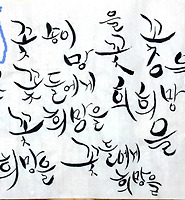 을
꽃송이 망 꽃
꽃들에게 희희망
꽃희망을 을
희망을 꽃들에게
희망을